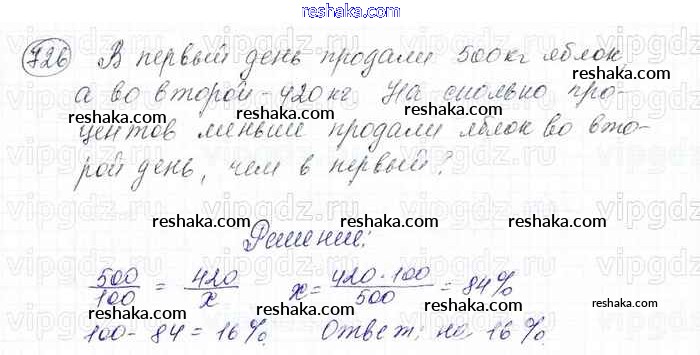 reshaka.com
726 В первый день продали 500 кг яблок,
а во второй - 420 кг. На сколько про-
reshaka.com
центов меньше продали яблок во вто-
reshaka.com reshaka.com
рой день, чем в первый?
reshaka.com
reshaka.com reshaka.com
Решение:
reshaka.com
500/100 = 420/x x = 420 · 100/500 = 84%
reshaka.com reshaka.com
100 - 84 = 16%. Ответ: на 16%.
reshaka.com